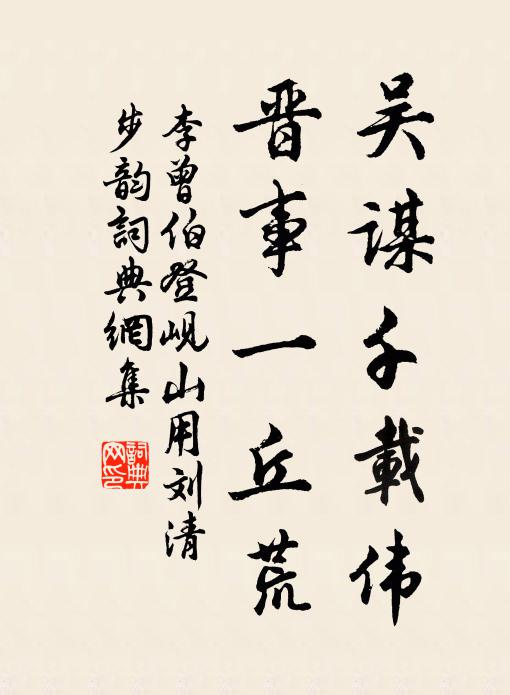 吴谋千載伟
晋事一丘荒
李曾伯登岘山用刘清
步韵詞典網集
詞典
网印